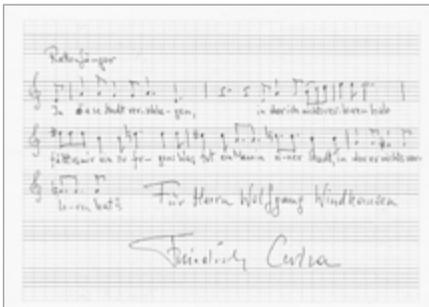 Rattenfänger
In diese Stadt verschla-gen, in der ich nichts verloren hab
mir zu fra-gen was tut ein Mann in einer Stadt, in der er nichts ver-
lo-ren hat?
Für Herrn Wolfgang Windhausen
Friedrich Cerha